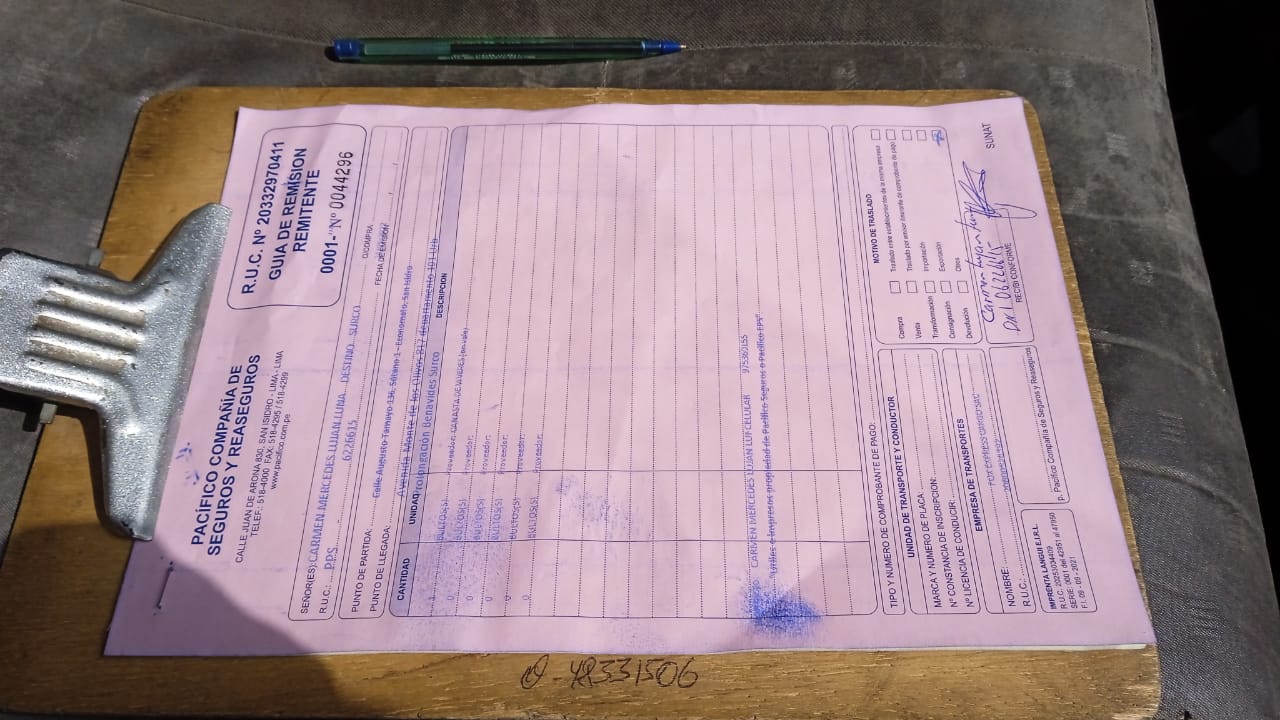 PACÍFICO COMPAÑÍA DE
SEGUROS Y REASEGUROS
CALLE JUAN DE ARONA 830, SAN ISIDRO - LIMA - LIMA
TELEF.: 518-4000 FAX: 518-4295 / 518-4299
www.pacifico.com.pe
R.U.C. Nº 20332970411
GUIA DE REMISIÓN
REMITENTE
0001- Nº 0044296
SEÑOR(ES): CARMEN MERCEDES LUJAN LUNA DESTINO: SURCO
R.U.C.: PPS 6226615
O/COMPRA
PUNTO DE PARTIDA: Calle Augusto Tamayo 136, Sótano 1 - Economato, San Isidro
FECHA DE EMISIÓN
PUNTO DE LLEGADA: Avenida Monte de los Olivos 817 departamento 101 Urb
Prolongación Benavides Surco
CANTIDAD UNIDAD DESCRIPCIÓN
1 BULTO(S) Proveedor: CANASTA DE VIVERES
0 BULTO(S) Proveedor:
0 BULTO(S) Proveedor:
0 BULTO(S) Proveedor:
0 BULTO(S) Proveedor:
0 BULTO(S) Proveedor:
CARMEN MERCEDES LUJAN LU CELULAR
Utiles e Impresos propiedad de Pacífico Seguros o Pacífico EPS
TIPO Y NÚMERO DE COMPROBANTE DE PAGO:
UNIDAD DE TRANSPORTE Y CONDUCTOR
MARCA Y NÚMERO DE PLACA:
Nº CONSTANCIA DE INSCRIPCIÓN:
Nº LICENCIA DE CONDUCIR:
EMPRESA DE TRANSPORTES
NOMBRE:
R.U.C.:
IMPRENTA LANGUI E.I.R.L.
R.U.C. 20251004409
SERIE: 0001 del 42951 al 47150
F.I. 09 - 09 - 2021
p. Pacífico Compañía de Seguros y Reaseguros
MOTIVO DE TRASLADO
Compra
Venta
Transformación
Consignación
Devolución
Traslado entre establecimientos de la misma empresa
Traslado por emisor itinerante de comprobante de pago
Importación
Exportación
Otros
Carmen Lujan Luna
DNI 06226615
RECIBI CONFORME
SUNAT
48331506